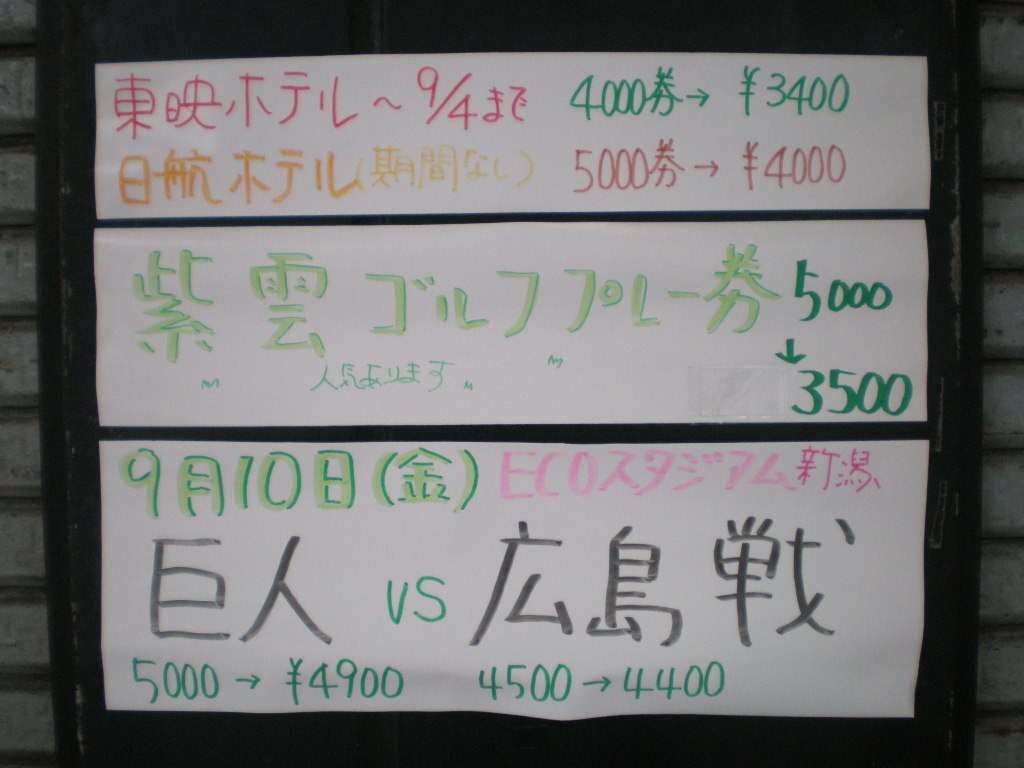 東映ホテル～9/4まで 4000券→ ¥3400
日航ホテル(期間なし) 5000券→ ¥4000
紫雲ゴルフプレー券 5000
↓
人気あります
3500
9月10日(金) ECOスタジアム新潟
巨人 VS 広島戦
5000→ ¥4900 4500→4400